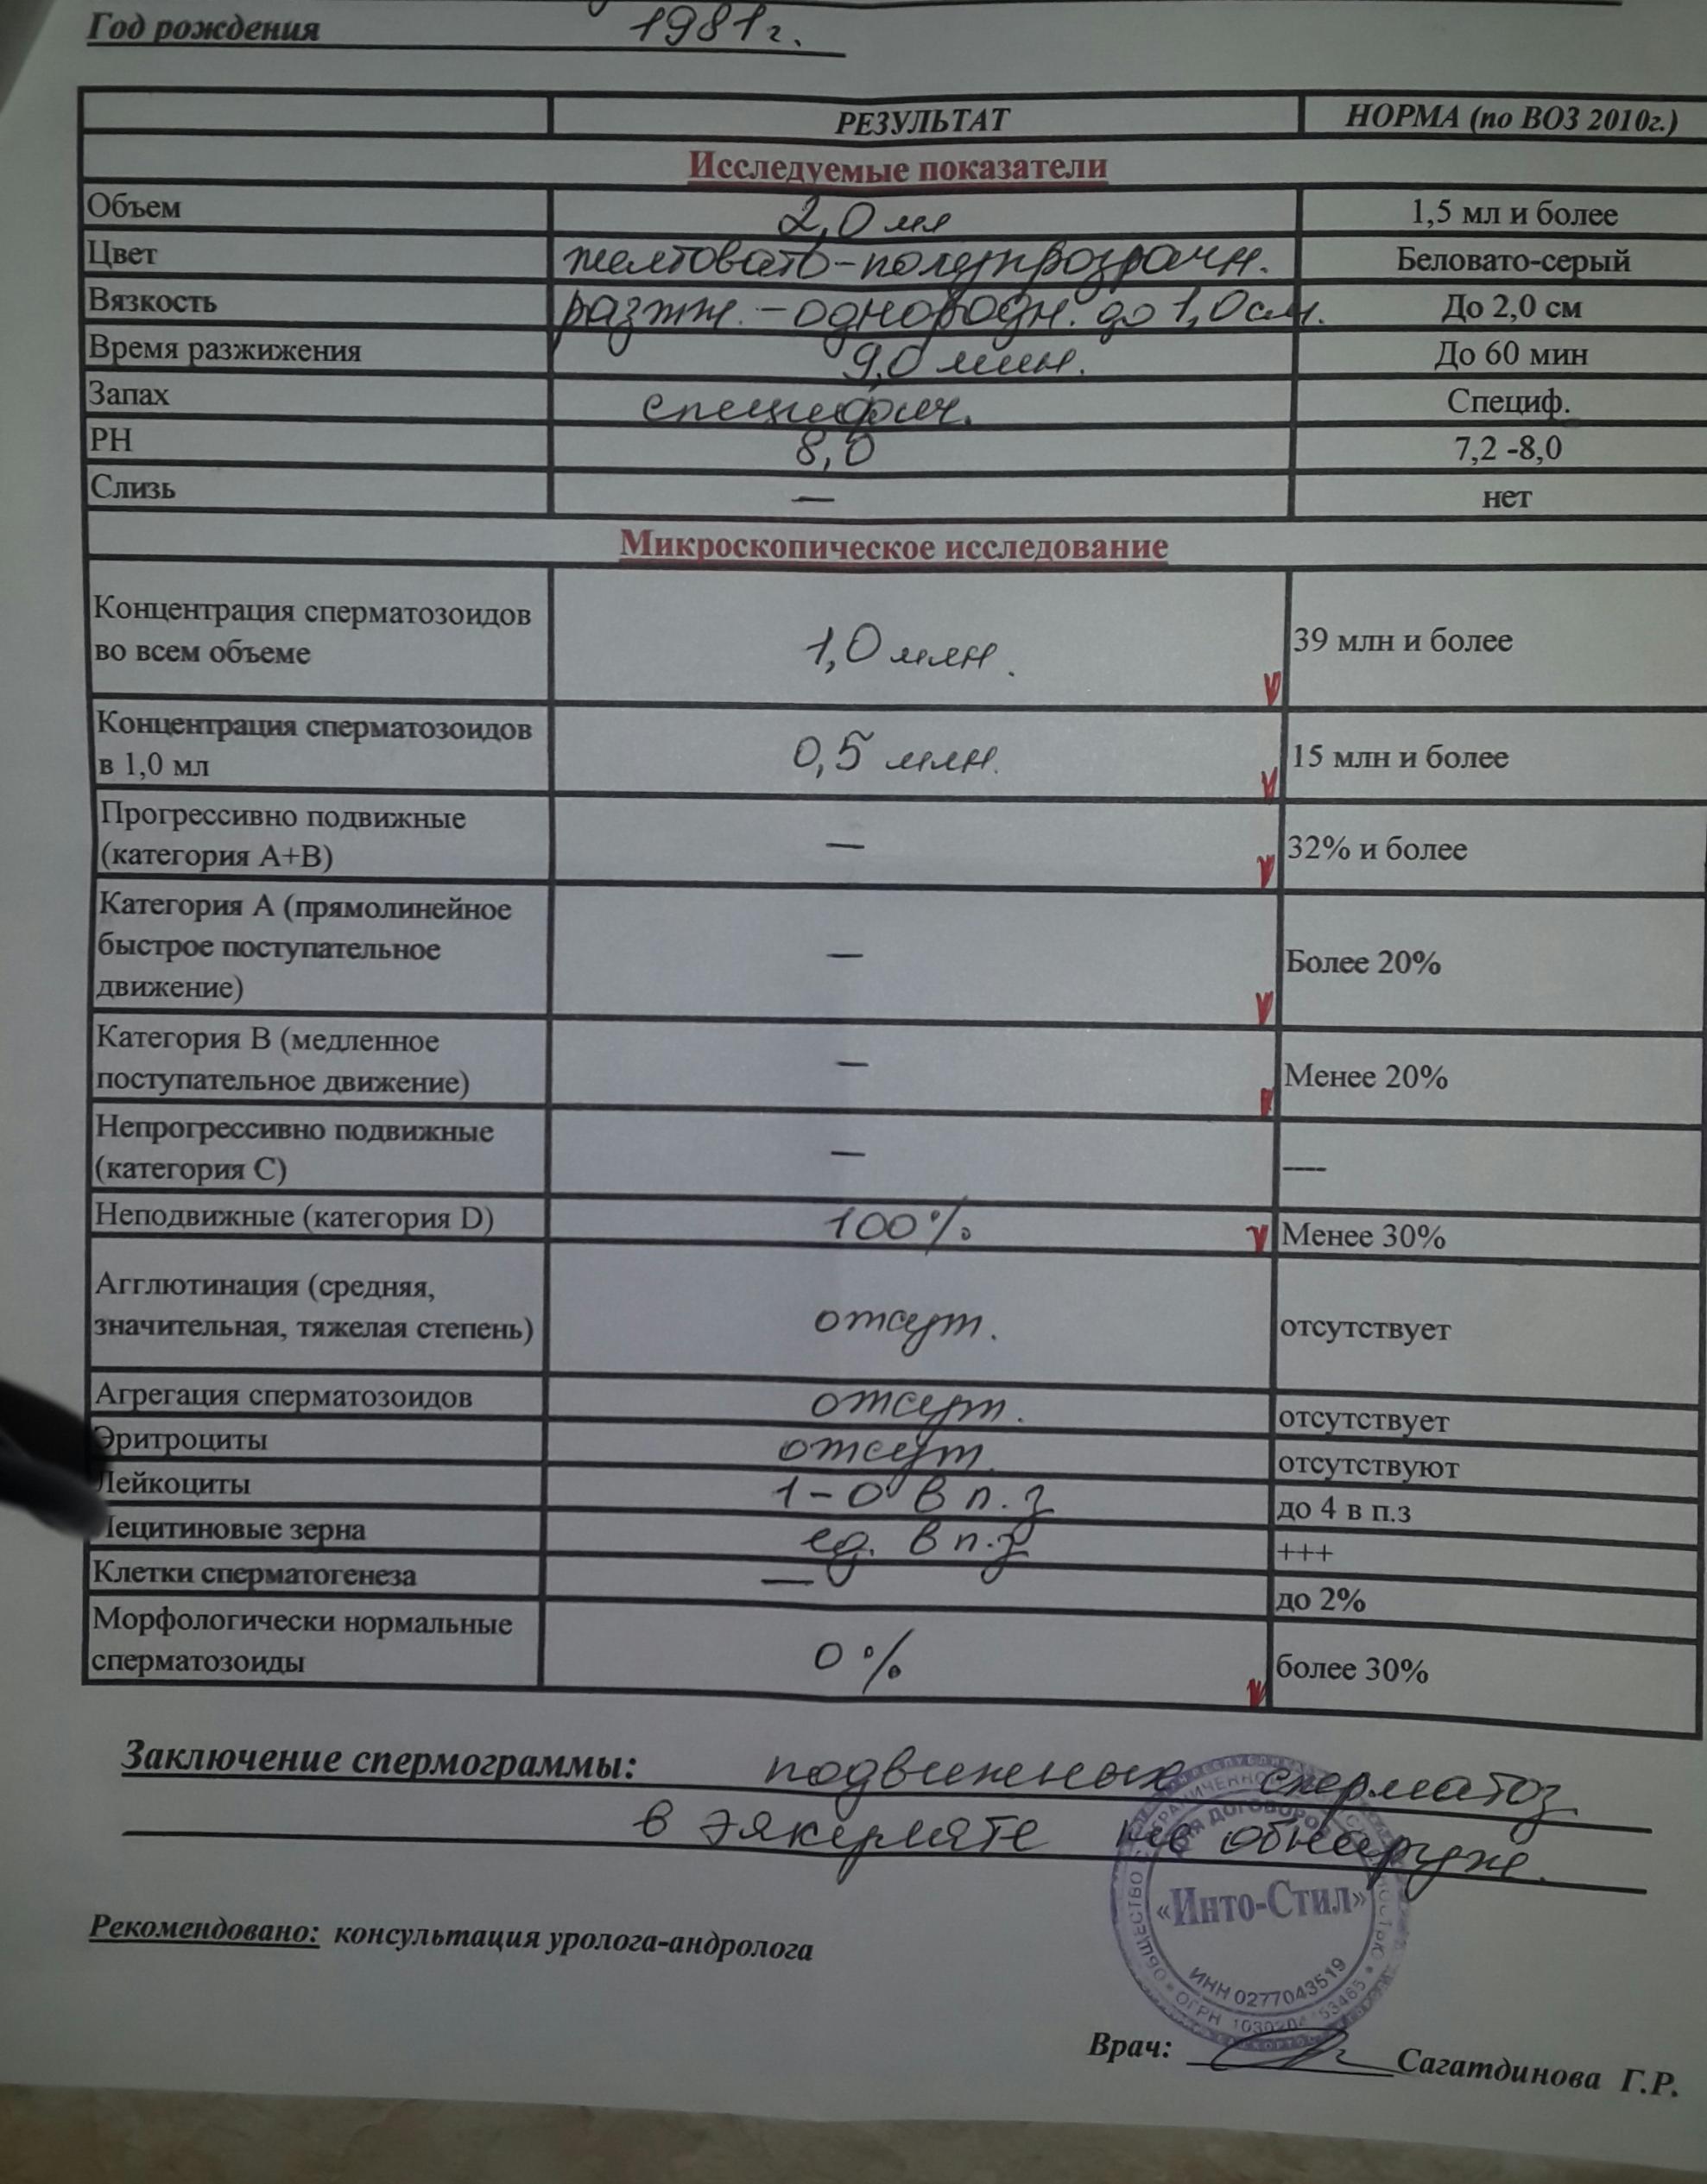 Год рождения 1981г.
РЕЗУЛЬТАТ НОРМА (по ВОЗ 2010г.)
Исследуемые показатели
Объем 2,0 мл 1,5 мл и более
Цвет желтовато-полупрозрачн. Беловато-серый
Вязкость разжж. - однородн. до 1,0 см. До 2,0 см
Время разжижения 9,0 мин. До 60 мин
Запах специфич. Специф.
РН 8,0 7,2 -8,0
Слизь — нет
Микроскопическое исследование
Концентрация сперматозоидов
во всем объеме 1,0 млн. 39 млн и более
Концентрация сперматозоидов
в 1,0 мл 0,5 млн. 15 млн и более
Прогрессивно подвижные
(категория А+В) — 32% и более
Категория А (прямолинейное
быстрое поступательное — Более 20%
движение)
Категория В (медленное
поступательное движение) — Менее 20%
Непрогрессивно подвижные
(категория С) — ----
Неподвижные (категория D) 100% Менее 30%
Агглютинация (средняя,
значительная, тяжелая степень) отсут. отсутствует
Агрегация сперматозоидов отсут. отсутствует
Эритроциты отсут. отсутствуют
Лейкоциты 1-0 в п.з до 4 в п.з
Лецитиновые зерна ед. в п.з +++
Клетки сперматогенеза — до 2%
Морфологически нормальные
сперматозоиды 0% более 30%
Заключение спермограммы: подвижных сперматоз
в эякуляте не обнаруж.
«Инто-Стил»
ДЛЯ ДОГОВОРОВ
ИНН 0277043519
Рекомендовано: консультация уролога-андролога
Врач: Сагатдинова Г.Р.